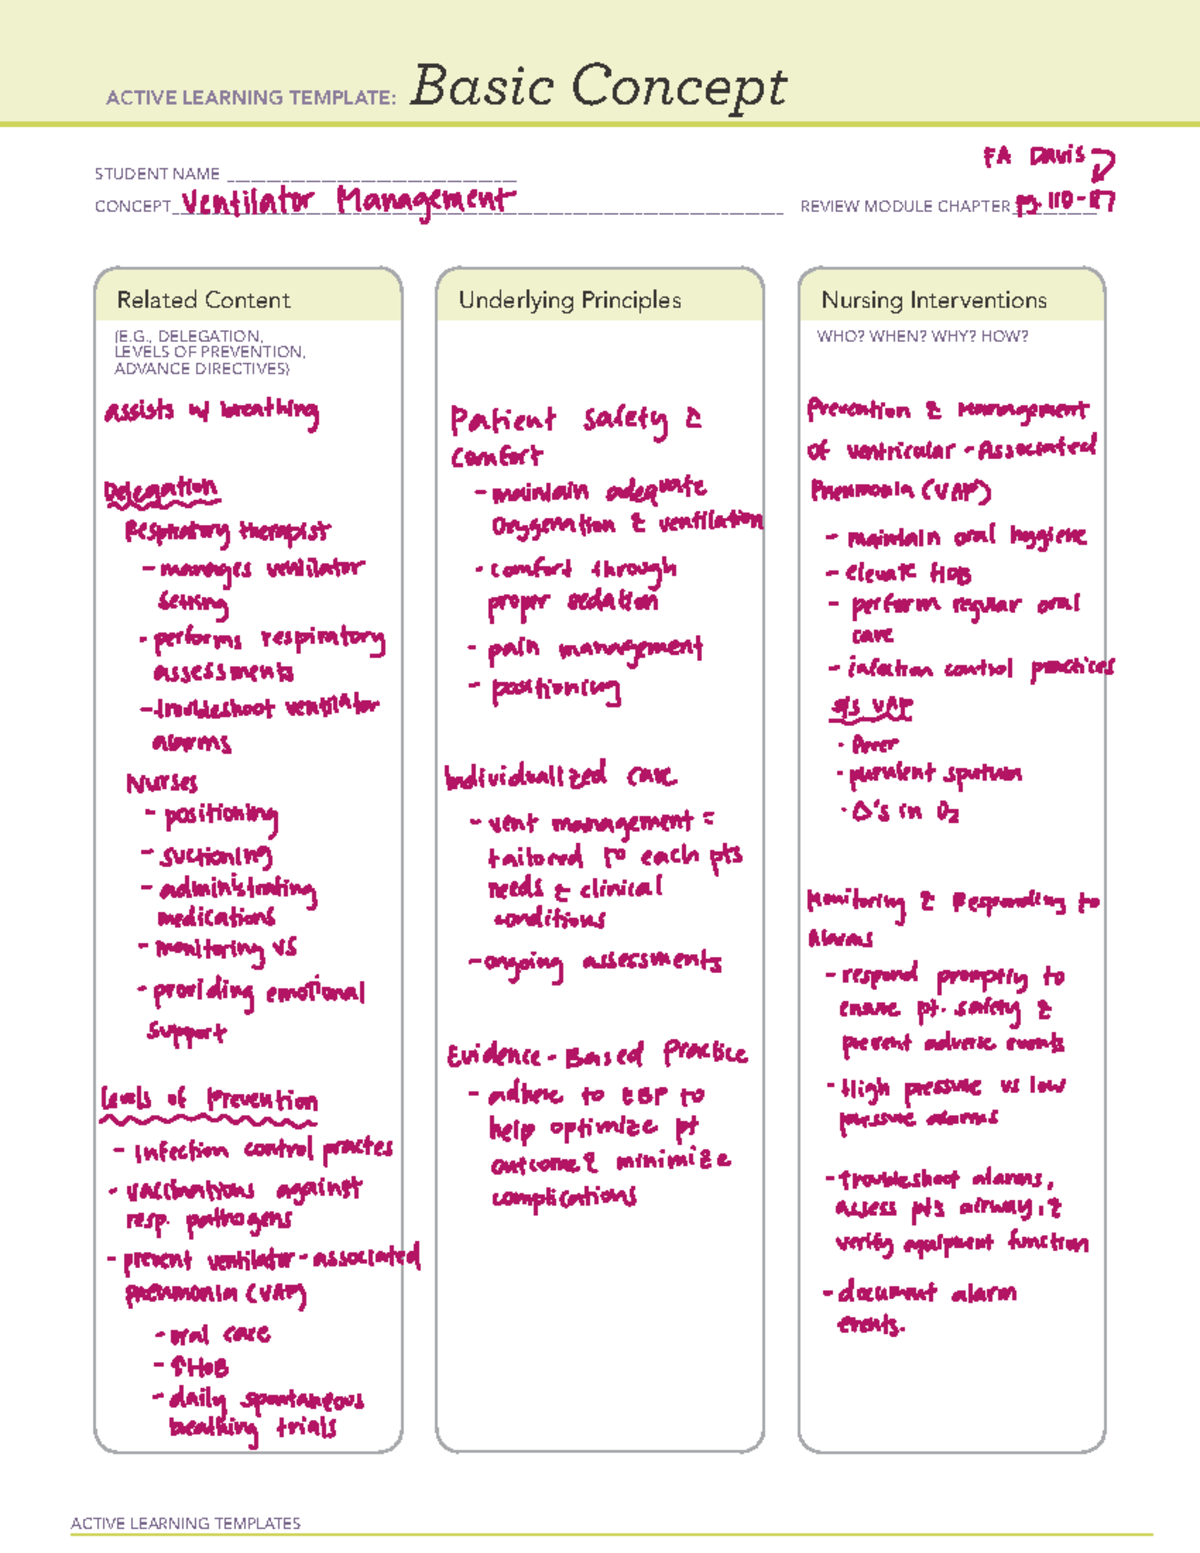 ACTIVE LEARNING TEMPLATE: Basic Concept
FA Davis
STUDENT NAME
CONCEPT Ventilator Management
REVIEW MODULE CHAPTER pg. 110-117
Related Content
(E.G., DELEGATION,
LEVELS OF PREVENTION,
ADVANCE DIRECTIVES)
assists w/ breathing
Delegation
Respiratory therapist
- manages ventilator
setting
- performs respiratory
assessments
- troubleshoot ventilator
alarms
Nurses
- positioning
- suctioning
- administrating
medications
- monitoring VS
- providing emotional
support
Levels of Prevention
- Infection control practes
- vaccinations against
resp. pathogens
- prevent ventilator-associated
pneumonia (VAP)
- oral care
- ↑HOB
- daily spontaneous
breathing trials
Underlying Principles
Patient Safety &
Comfort
- maintain adequate
oxygenation & ventilation
- comfort through
proper sedation
- pain management
- positioning
Individualized care
- vent management =
tailored to each pts
needs & clinical
conditions
- ongoing assessments
Evidence-Based Practice
- adhere to EBP to
help optimize pt
outcome & minimize
complications
Nursing Interventions
WHO? WHEN? WHY? HOW?
Prevention & Management
of ventricular-Associated
Pneumonia (VAP)
- maintain oral hygiene
- elevate HOB
- perform regular oral
care
- infection control practices
s/s VAP
· fever
· purulent sputum
· Δ's in O2
Monitoring & Responding to
Alarms
- respond promptly to
ensure pt. safety &
prevent adverse events
- High pressure vs low
pressure alarms
- troubleshoot alarms,
assess pts airway, &
verify equipment function
- document alarm
events.
ACTIVE LEARNING TEMPLATES